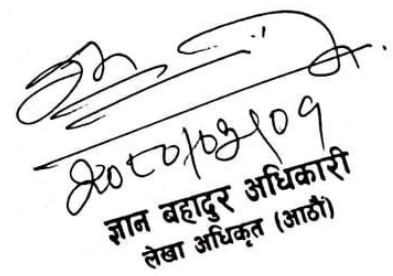 २०८०/०३/०९
ज्ञान बहादुर अधिकारी
लेखा अधिकृत (आठौं)